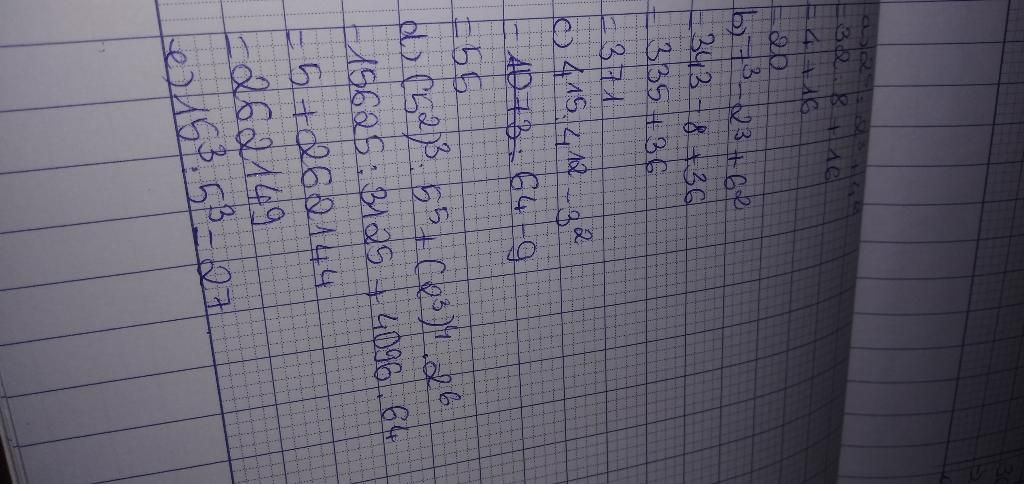 a) 2⁵ : 2³ + 4²
= 32 : 8 + 16
= 4 + 16
= 20
b) 7³ - 2³ + 6²
= 343 - 8 + 36
= 335 + 36
= 371
c) 4¹⁵ : 4¹² - 3²
= 64 - 9
= 55
d) (5²)³ : 5⁵ + (2³)⁴ . 2⁶
= 15625 : 3125 + 4096 . 64
= 5 + 262144
= 262149
e) 15³ : 5³ - 27